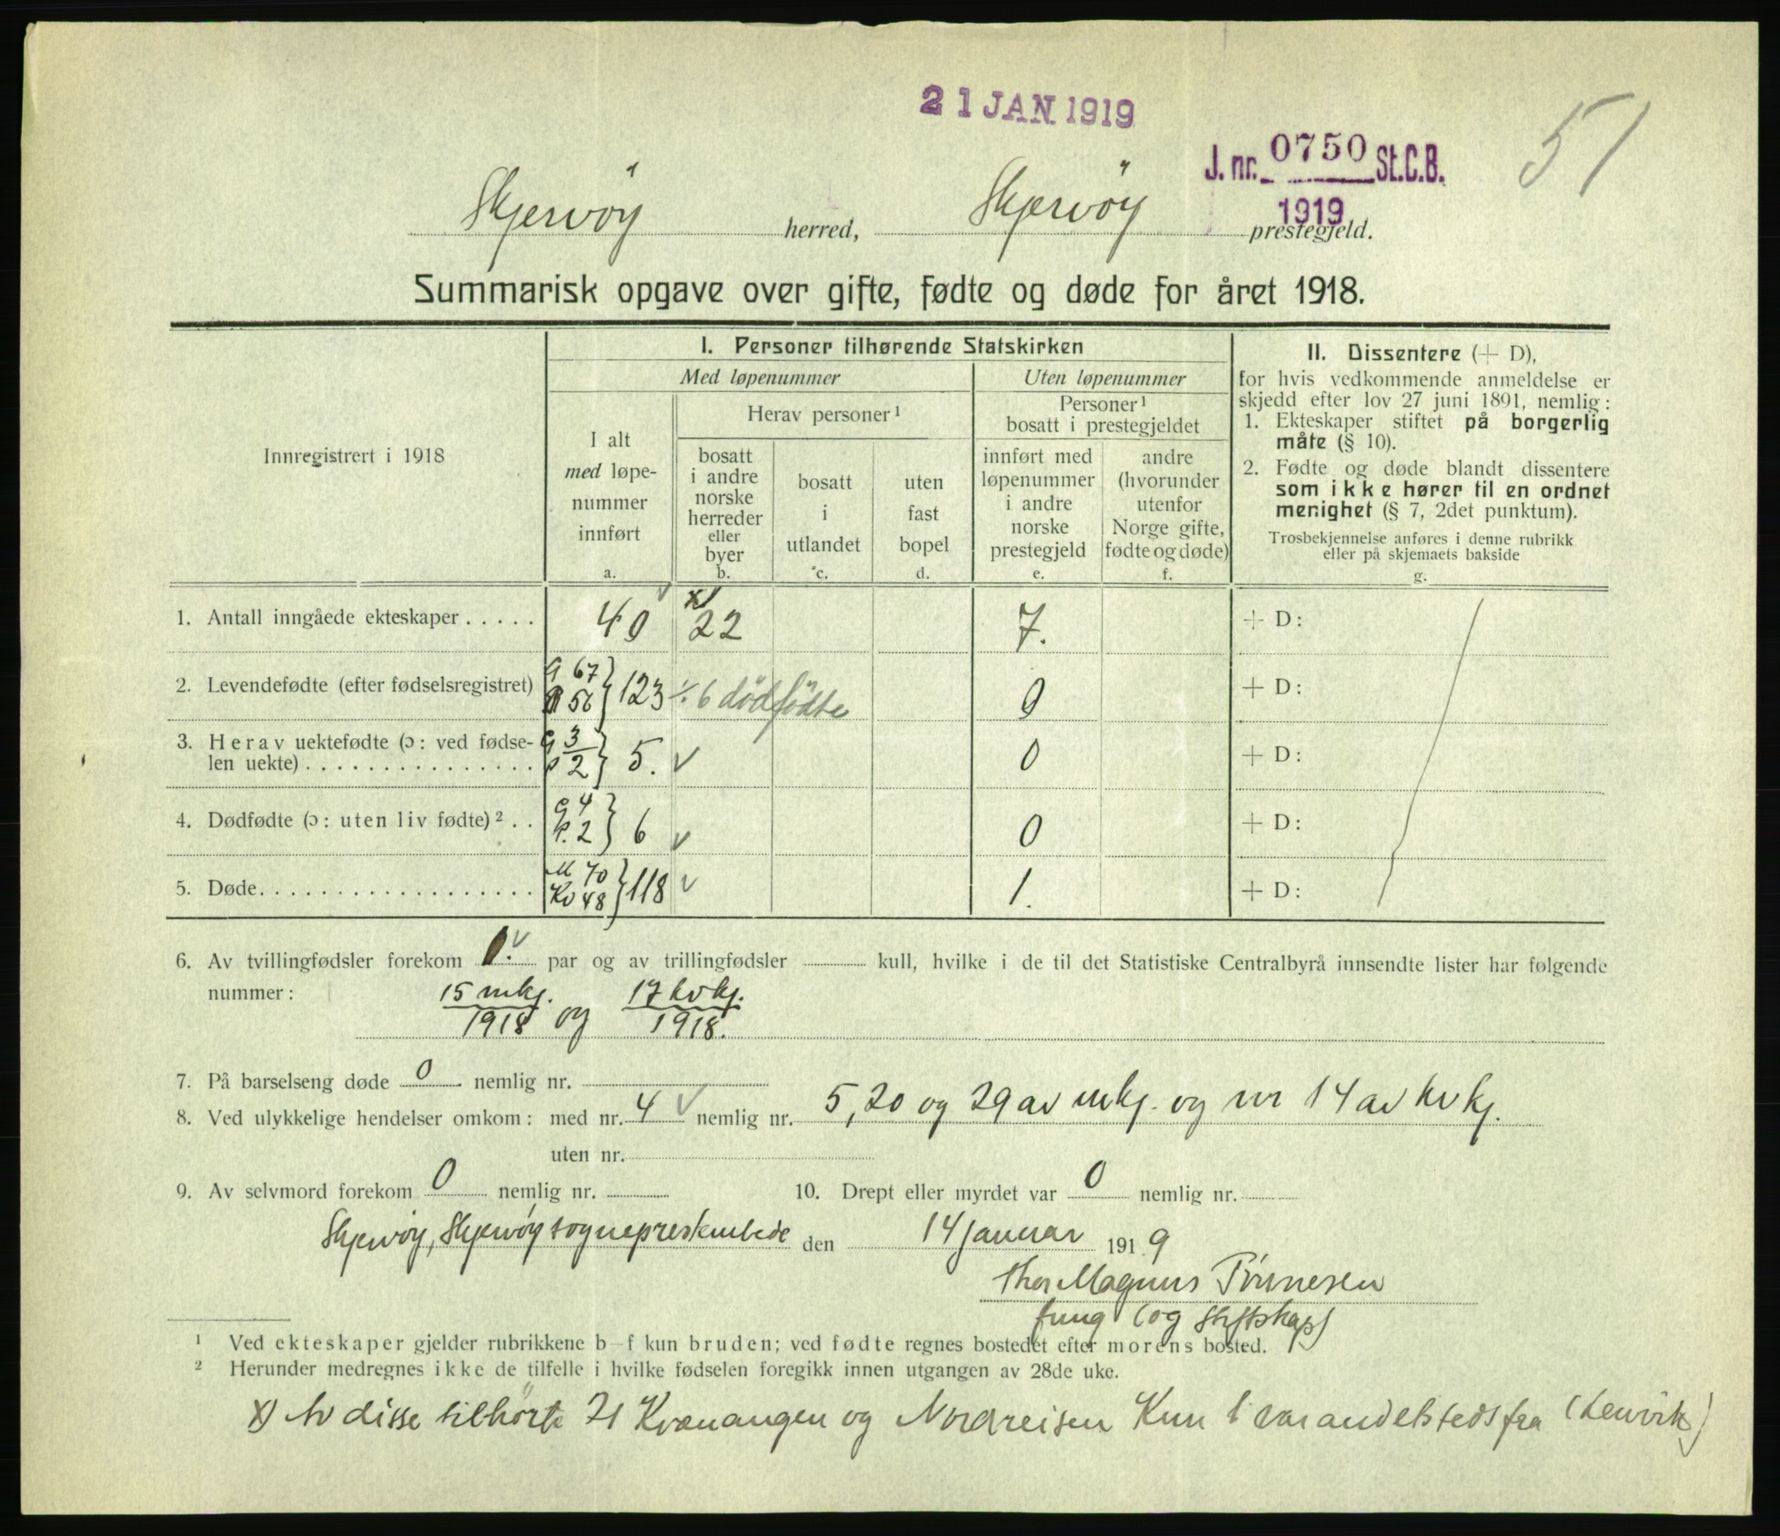 21 JAN 1919
J. nr. 0750 St.C.B.
1919
51
Skjervöy herred, Skjervöy prestegjeld.
Summarisk opgave over gifte, fødte og døde for året 1918.
Innregistrert i 1918
I. Personer tilhørende Statskirken
Med løpenummer
Uten løpenummer
I alt
med løpe-
nummer
innført
a.
Herav personer ¹
bosatt
i andre
norske
herreder
eller
byer
b.
bosatt
i
utlandet
c.
uten
fast
bopel
d.
Personer ¹
bosatt i prestegjeldet
innført med
løpenummer
i andre
norske
prestegjeld
e.
andre
(hvorunder
utenfor
Norge gifte,
fødte og døde)
f.
II. Dissentere (+ D),
for hvis vedkommende anmeldelse er
skjedd efter lov 27 juni 1891, nemlig:
1. Ekteskaper stiftet på borgerlig
måte (§ 10).
2. Fødte og døde blandt dissentere
som ikke hører til en ordnet
menighet (§ 7, 2det punktum).
Trosbekjennelse anføres i denne rubrikk
eller på skjemaets bakside
g.
1. Antall inngåede ekteskaper ..... 40 x) 22 7. + D:
2. Levendefødte (efter fødselsregistret) G 67 P 56 } 123 ÷ 6 dödfödte 0 + D:
3. Herav uektefødte (ɔ: ved fødse-
len uekte) ............... G 3 P 2 } 5. 0 + D:
4. Dødfødte (ɔ: uten liv fødte) ² .. G 4 P. 2 } 6 0 + D:
5. Døde .................. M 70 Kv 48 } 118 1. + D:
6. Av tvillingfødsler forekom 1. par og av trillingfødsler kull, hvilke i de til det Statistiske Centralbyrå innsendte lister har følgende
nummer: 15 mkj. 1918 og 17 kvkj. 1918.
7. På barselseng døde 0 nemlig nr.
8. Ved ulykkelige hendelser omkom: med nr. 4 nemlig nr. 5, 20 og 29 av mkj. og nr 14 av kvkj.
uten nr.
9. Av selvmord forekom 0 nemlig nr. 10. Drept eller myrdet var 0 nemlig nr.
Skjervöy, Skjervöy sogneprestembede den 14 januar 1919
Thor Magnus Tönnesen
fung (og stiftskap)
¹ Ved ekteskaper gjelder rubrikkene b–f kun bruden; ved fødte regnes bostedet efter morens bosted.
² Herunder medregnes ikke de tilfelle i hvilke fødselen foregikk innen utgangen av 28de uke.
x) Av disse tilhörte 21 Kvænangen og Nordreisen Kun 1 var andetsteds fra (Lenvik)